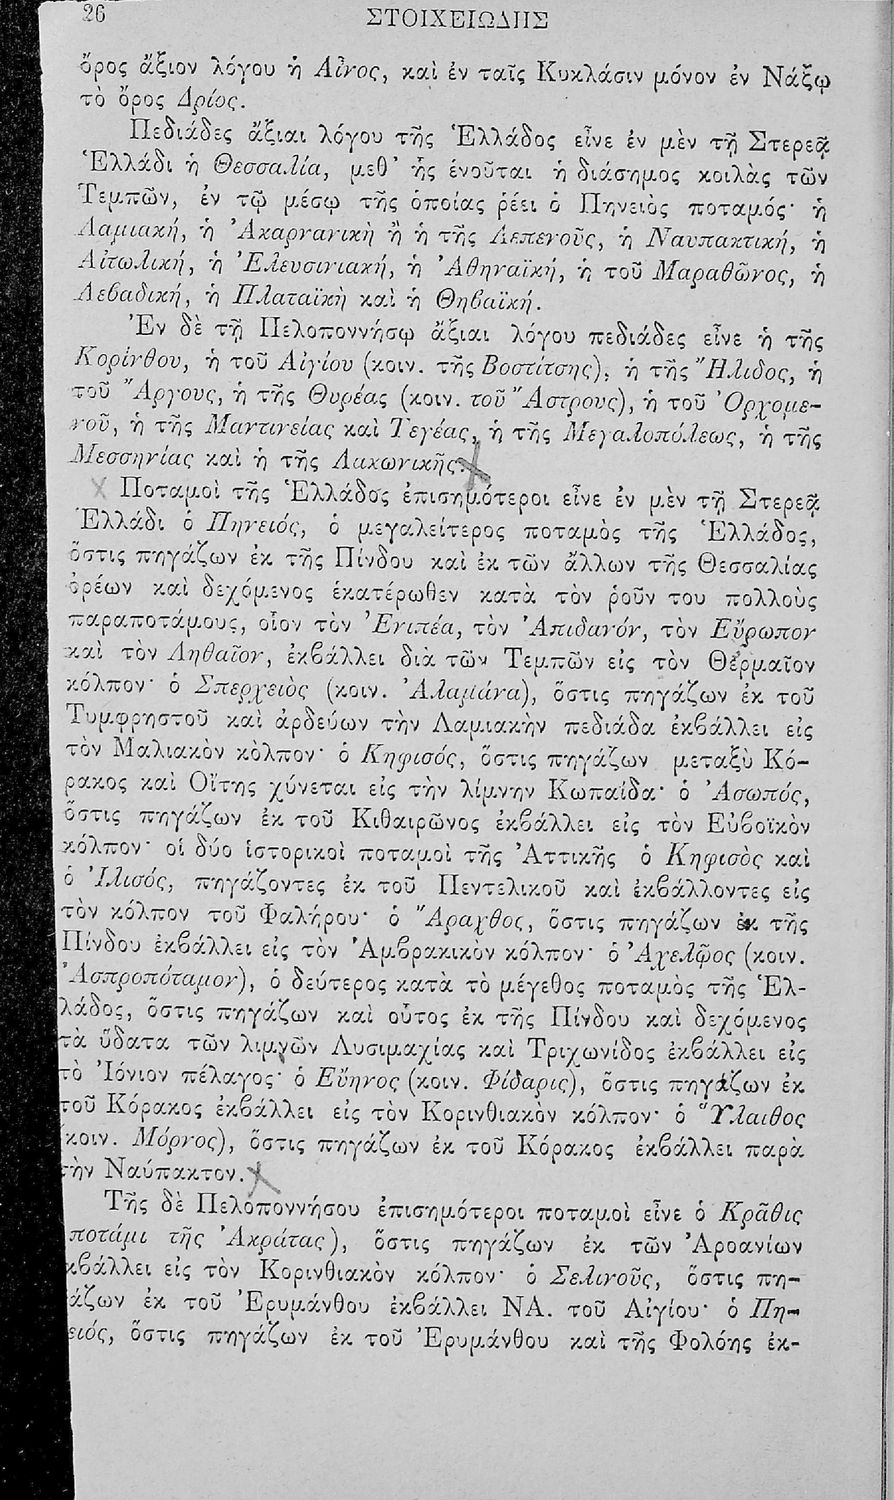 26 ΣΤΟΙΧΕΙΩΔΗΣ
ὄρος ἄξιον λόγου ἡ Αἶνος, καὶ ἐν ταῖς Κυκλάσιν μόνον ἐν Νάξῳ
τὸ ὄρος Δρίος.
Πεδιάδες ἄξιαι λόγου τῆς Ἑλλάδος εἶνε ἐν μὲν τῇ Στερεᾷ
Ἑλλάδι ἡ Θεσσαλία, μεθ’ ἧς ἑνοῦται ἡ διάσημος κοιλὰς τῶν
Τεμπῶν, ἐν τῷ μέσῳ τῆς ὁποίας ῥέει ὁ Πηνειὸς ποταμός· ἡ
Λαμιακή, ἡ Ἀκαρνανικὴ ἢ ἡ τῆς Λεπενοῦς, ἡ Ναυπακτική, ἡ
Αἰτωλική, ἡ Ἐλευσινιακή, ἡ Ἀθηναϊκή, ἡ τοῦ Μαραθῶνος, ἡ
Λεβαδική, ἡ Πλαταϊκὴ καὶ ἡ Θηβαϊκή.
Ἐν δὲ τῇ Πελοποννήσῳ ἄξιαι λόγου πεδιάδες εἶνε ἡ τῆς
Κορίνθου, ἡ τοῦ Αἰγίου (κοιν. τῆς Βοστίτσης), ἡ τῆς Ἤλιδος, ἡ
τοῦ Ἄργους, ἡ τῆς Θυρέας (κοιν. τοῦ Ἄστρους), ἡ τοῦ Ὀρχομε-
νοῦ, ἡ τῆς Μαντινείας καὶ Τεγέας, ἡ τῆς Μεγαλοπόλεως, ἡ τῆς
Μεσσηνίας καὶ ἡ τῆς Λακωνικῆς.
Ποταμοὶ τῆς Ἑλλάδος ἐπισημότεροι εἶνε ἐν μὲν τῇ Στερεᾷ
Ἑλλάδι ὁ Πηνειός, ὁ μεγαλείτερος ποταμὸς τῆς Ἑλλάδος,
ὅστις πηγάζων ἐκ τῆς Πίνδου καὶ ἐκ τῶν ἄλλων τῆς Θεσσαλίας
ὀρέων καὶ δεχόμενος ἑκατέρωθεν κατὰ τὸν ῥοῦν του πολλοὺς
παραποτάμους, οἷον τὸν Ἐνιπέα, τὸν Ἀπιδανόν, τὸν Εὔρωπον
καὶ τὸν Ληθαῖον, ἐκβάλλει διὰ τῶν Τεμπῶν εἰς τὸν Θερμαῖον
κόλπον· ὁ Σπερχειὸς (κοιν. Ἀλαμάνα), ὅστις πηγάζων ἐκ τοῦ
Τυμφρηστοῦ καὶ ἀρδεύων τὴν Λαμιακὴν πεδιάδα ἐκβάλλει εἰς
τὸν Μαλιακὸν κόλπον· ὁ Κηφισός, ὅστις πηγάζων μεταξὺ Κό-
ρακος καὶ Οἴτης χύνεται εἰς τὴν λίμνην Κωπαΐδα· ὁ Ἀσωπός,
ὅστις πηγάζων ἐκ τοῦ Κιθαιρῶνος ἐκβάλλει εἰς τὸν Εὐβοϊκὸν
κόλπον· οἱ δύο ἱστορικοὶ ποταμοὶ τῆς Ἀττικῆς ὁ Κηφισὸς καὶ
ὁ Ἰλισός, πηγάζοντες ἐκ τοῦ Πεντελικοῦ καὶ ἐκβάλλοντες εἰς
τὸν κόλπον τοῦ Φαλήρου· ὁ Ἄραχθος, ὅστις πηγάζων ἐκ τῆς
Πίνδου ἐκβάλλει εἰς τὸν Ἀμβρακικὸν κόλπον· ὁ Ἀχελῷος (κοιν.
Ἀσπροπόταμον), ὁ δεύτερος κατὰ τὸ μέγεθος ποταμὸς τῆς Ἑλ-
λάδος, ὅστις πηγάζων καὶ οὗτος ἐκ τῆς Πίνδου καὶ δεχόμενος
τὰ ὕδατα τῶν λιμνῶν Λυσιμαχίας καὶ Τριχωνίδος ἐκβάλλει εἰς
τὸ Ἰόνιον πέλαγος· ὁ Εὔηνος (κοιν. Φίδαρις), ὅστις πηγάζων ἐκ
τοῦ Κόρακος ἐκβάλλει εἰς τὸν Κορινθιακὸν κόλπον· ὁ Ὕλαιθος
κοιν. Μόρνος), ὅστις πηγάζων ἐκ τοῦ Κόρακος ἐκβάλλει παρὰ
τὴν Ναύπακτον.
Τῆς δὲ Πελοποννήσου ἐπισημότεροι ποταμοὶ εἶνε ὁ Κρᾶθις
ποτάμι τῆς Ἀκράτας), ὅστις πηγάζων ἐκ τῶν Ἀροανίων
κβάλλει εἰς τὸν Κορινθιακὸν κόλπον· ὁ Σελινοῦς, ὅστις πη-
άζων ἐκ τοῦ Ἐρυμάνθου ἐκβάλλει ΝΑ. τοῦ Αἰγίου· ὁ Πη-
ειός, ὅστις πηγάζων ἐκ τοῦ Ἐρυμάνθου καὶ τῆς Φολόης ἐκ-